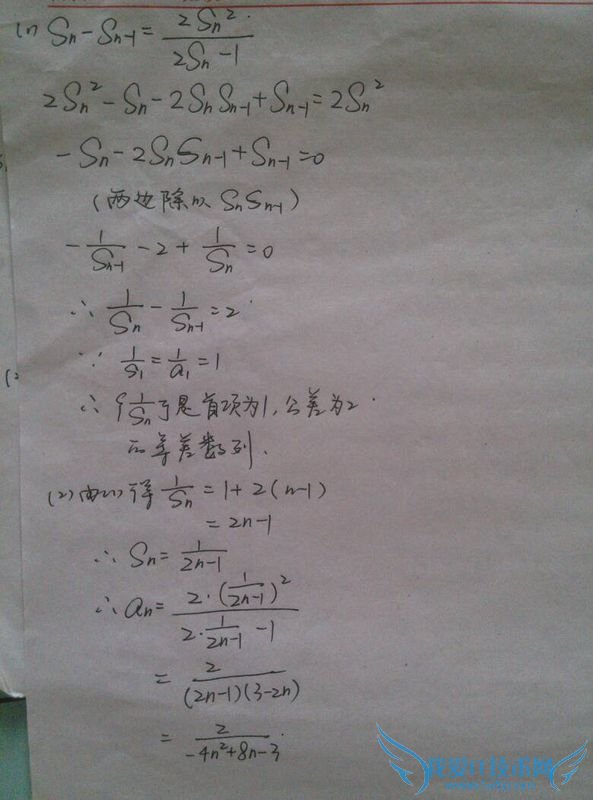 (1) Sn - Sn-1 = 2Sn² / (2Sn - 1)
2Sn² - Sn - 2SnSn-1 + Sn-1 = 2Sn²
- Sn - 2SnSn-1 + Sn-1 = 0
(两边除以 SnSn-1)
- 1/Sn-1 - 2 + 1/Sn = 0
∴ 1/Sn - 1/Sn-1 = 2
∵ 1/S1 = 1/a1 = 1
∴ {1/Sn}是首项为1,公差为2
的等差数列.
(2) 由(1)得 1/Sn = 1 + 2(n-1)
= 2n-1
∴ Sn = 1/(2n-1)
∴ an = 2·(1/(2n-1))² / (2·1/(2n-1) - 1)
= 2 / ((2n-1)(3-2n))
= 2 / (-4n²+8n-3)